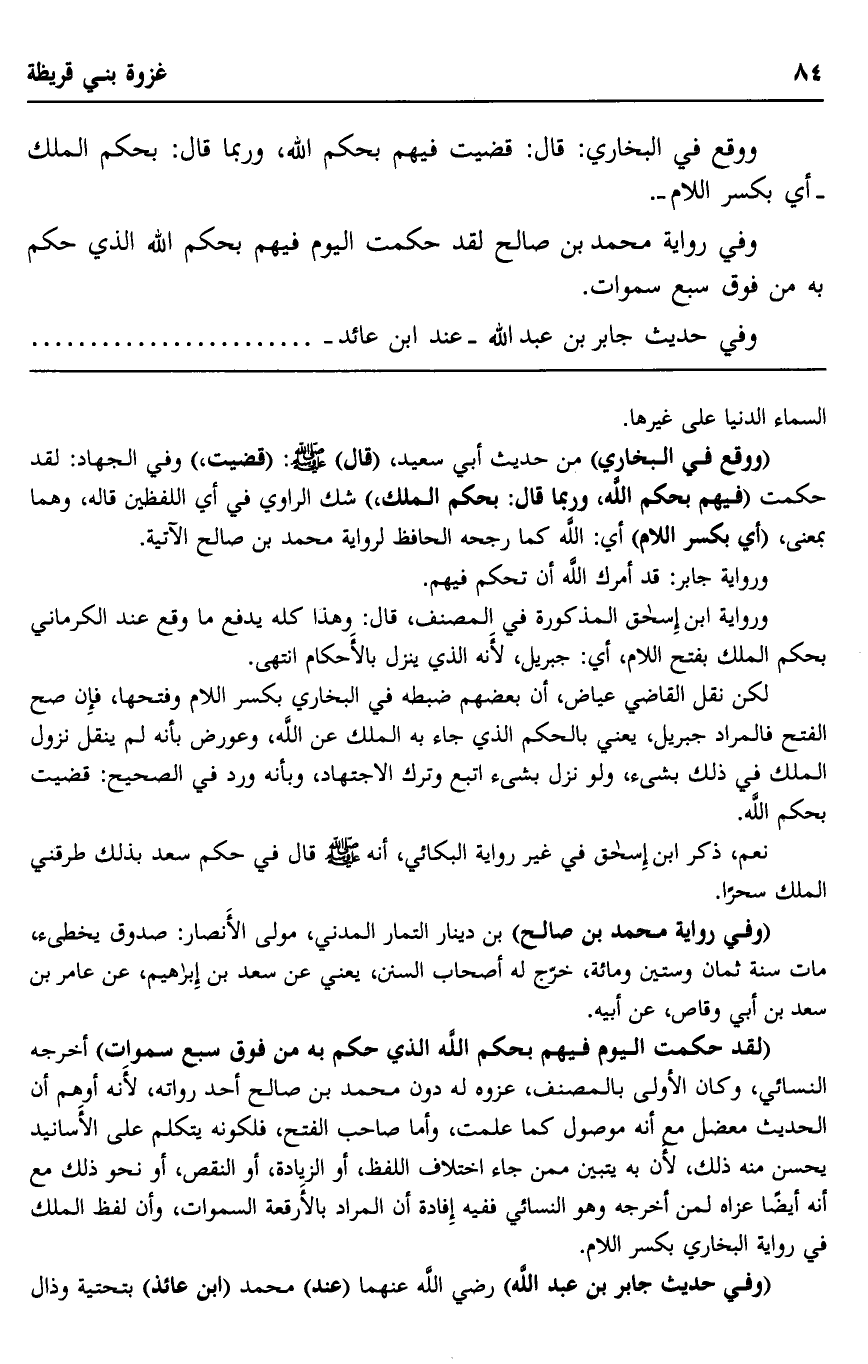 ٨٤ غزوة بني قريظة
ووقع في البخاري: قال: قضيت فيهم بحكم الله، وربما قال: بحكم الملك
ـ أي بكسر اللام ـ.
وفي رواية محمد بن صالح لقد حكمت اليوم فيهم بحكم الله الذي حكم
به من فوق سبع سموات.
وفي حديث جابر بن عبد الله ـ عند ابن عائد ـ ........................
السماء الدنيا على غيرها.
(ووقع في البخاري) من حديث أبي سعيد، (قال) ﷺ: (قضيت،) وفي الجهاد: لقد
حكمت (فيهم بحكم اللَّه، وربما قال: بحكم الملك،) شك الراوي في أي اللفظين قاله، وهما
بمعنى، (أي بكسر اللام) أي: اللَّه كما رجحه الحافظ لرواية محمد بن صالح الآتية.
ورواية جابر: قد أمرك اللَّه أن تحكم فيهم.
ورواية ابن إسحٰق المذكورة في المصنف، قال: وهذا كله يدفع ما وقع عند الكرماني
بحكم الملك بفتح اللام، أي: جبريل، لأَنه الذي ينزل بالأَحكام انتهى.
لكن نقل القاضي عياض، أن بعضهم ضبطه في البخاري بكسر اللام وفتحها، فإِن صح
الفتح فالمراد جبريل، يعني بالحكم الذي جاء به الملك عن اللَّه، وعورض بأنه لم ينقل نزول
الملك في ذلك بشىء، ولو نزل بشىء اتبع وترك الاجتهاد، وبأنه ورد في الصحيح: قضيت
بحكم اللَّه.
نعم، ذكر ابن إسحٰق في غير رواية البكائي، أنه ﷺ قال في حكم سعد بذلك طرقني
الملك سحرًا.
(وفي رواية محمد بن صالح) بن دينار التمار المدني، مولى الأَنصار: صدوق يخطىء،
مات سنة ثمان وستين ومائة، خرّج له أصحاب السنن، يعني عن سعد بن إبرٰهيم، عن عامر بن
سعد بن أبي وقاص، عن أبيه.
(لقد حكمت اليوم فيهم بحكم اللَّه الذي حكم به من فوق سبع سموات) أخرجه
النسائي، وكان الأولى بالمصنف، عزوه له دون محمد بن صالح أحد رواته، لأَنه أوهم أن
الحديث معضل مع أنه موصول كما علمت، وأما صاحب الفتح، فلكونه يتكلم على الأَسانيد
يحسن منه ذلك، لأَن به يتبين ممن جاء اختلاف اللفظ، أو الزيادة، أو النقص، أو نحو ذلك مع
أنه أيضًا عزاه لمن أخرجه وهو النسائي ففيه إفادة أن المراد بالأرقعة السموات، وأن لفظ الملك
في رواية البخاري بكسر اللام.
(وفي حديث جابر بن عبد اللَّه) رضي اللَّه عنهما (عند) محمد (ابن عائذ) بتحتية وذال